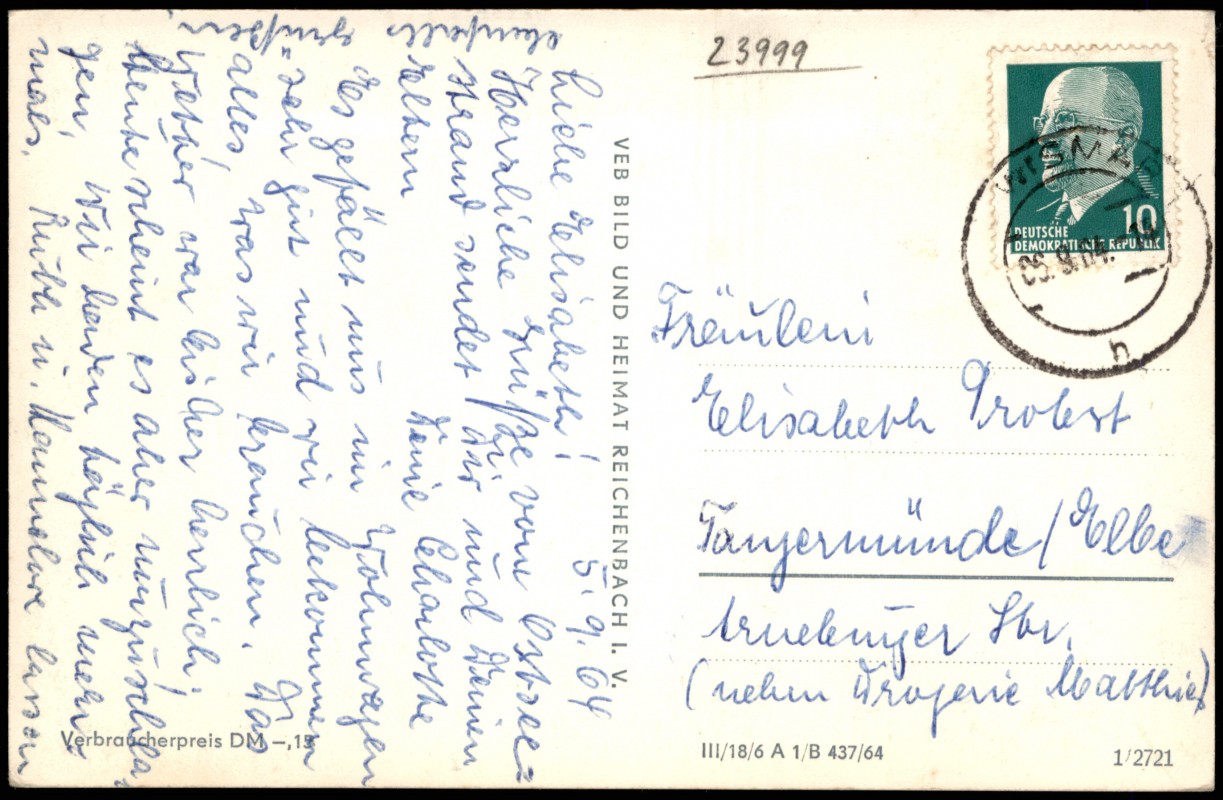 5.9.64
Liebe Elisabeth!
Herzliche Grüße vom Ostsee=
strand sendet Dir und Deinen
Eltern Deine Charlotte
Es gefällt uns im Wohnwagen
sehr gut und wir bekommen
alles, was wir brauchen. Das
Wetter war bisher herrlich.
Heute scheint es aber umzuschla-
gen. Wir baden täglich mehr-
mals. Ruth u. Hannelore lassen
ebenfalls
grüßen
VEB BILD UND HEIMAT REICHENBACH I. V.
23999
DEUTSCHE
DEMOKRATISCHE REPUBLIK
10
WISMAR
05.9.64.
h
Fräulein
Elisabeth Probst
Tangermünde/Elbe
Arneburger Str.
(neben Drogerie Matthies)
Verbraucherpreis DM –,15
III/18/6 A 1/B 437/64
1/2721